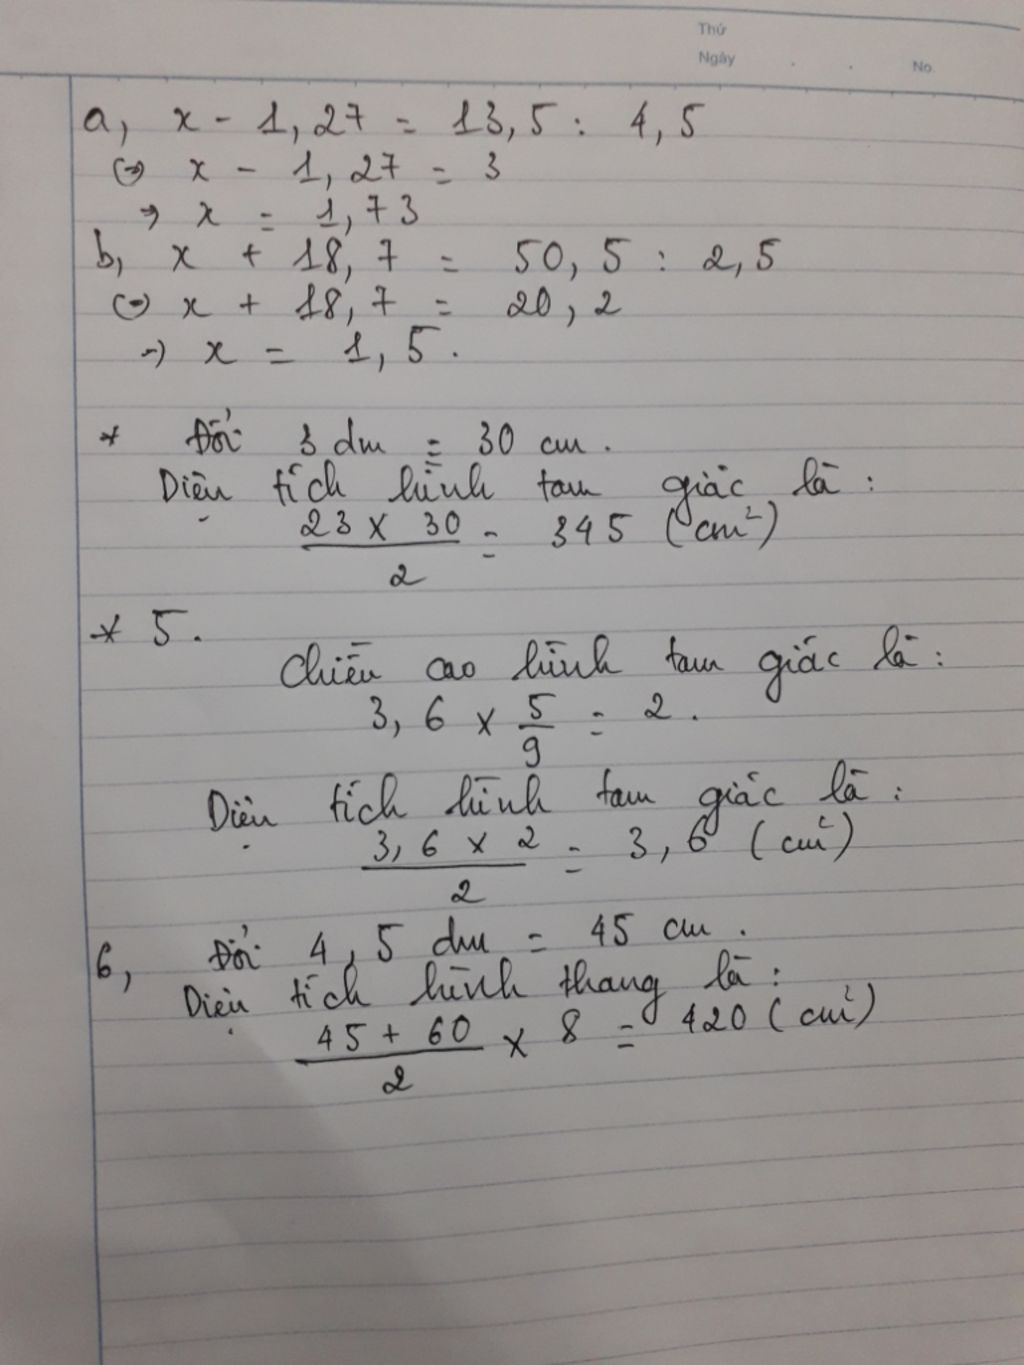 Thứ
Ngày . . No.
a, x - 1,27 = 13,5 : 4,5
(=) x - 1,27 = 3
=> x = 1,73
b, x + 18,7 = 50,5 : 2,5
(=) x + 18,7 = 20,2
=) x = 1,5.
* Đổi 3 dm = 30 cm.
Diện tích hình tam giác là :
23 x 30 / 2 = 345 (cm²)
* 5.
Chiều cao hình tam giác là :
3,6 x 5/9 = 2.
Diện tích hình tam giác là :
3,6 x 2 / 2 = 3,6 (cm²)
6, Đổi 4,5 dm = 45 cm.
Diện tích hình thang là :
45 + 60 / 2 x 8 = 420 (cm²)